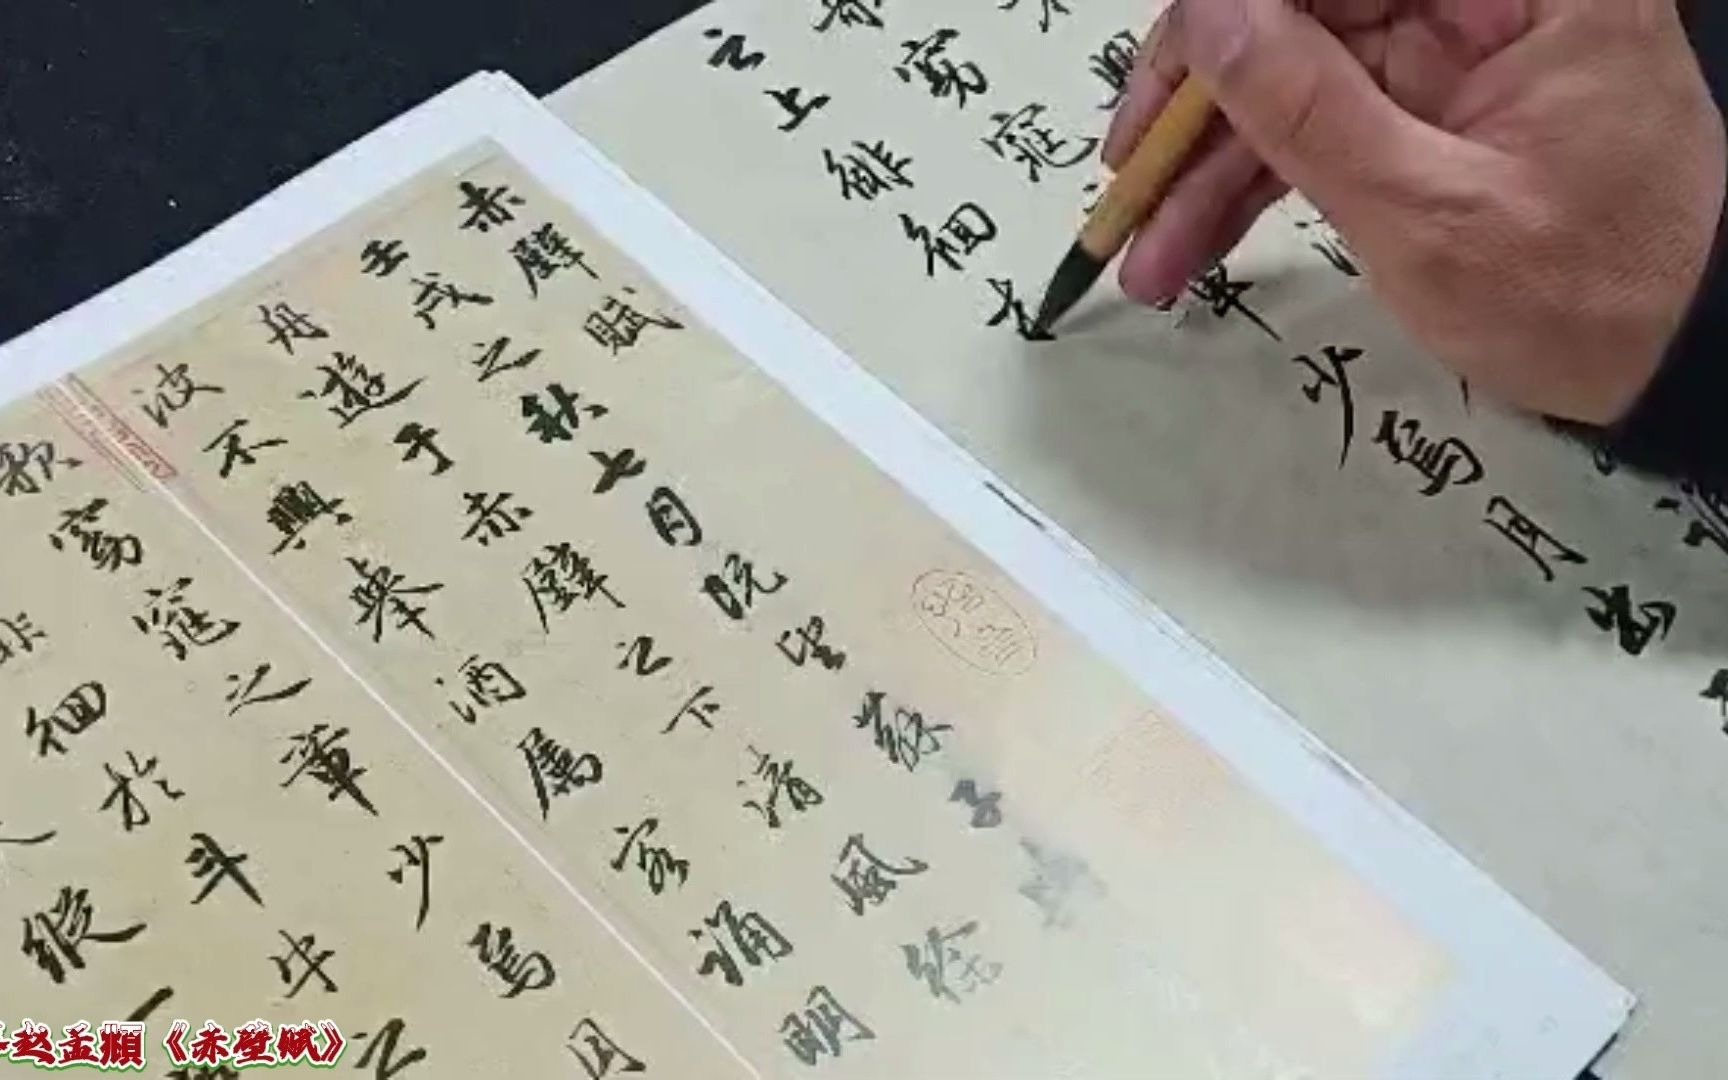 窈窕
章少焉月出
之上徘徊
赤壁賦
壬戌之秋七月既望蘇子
舟遊于赤壁之下清風徐
波不興舉酒属客誦明
歌窈窕之章少焉月
徊於斗牛之
縱一
赵孟頫《赤壁赋》